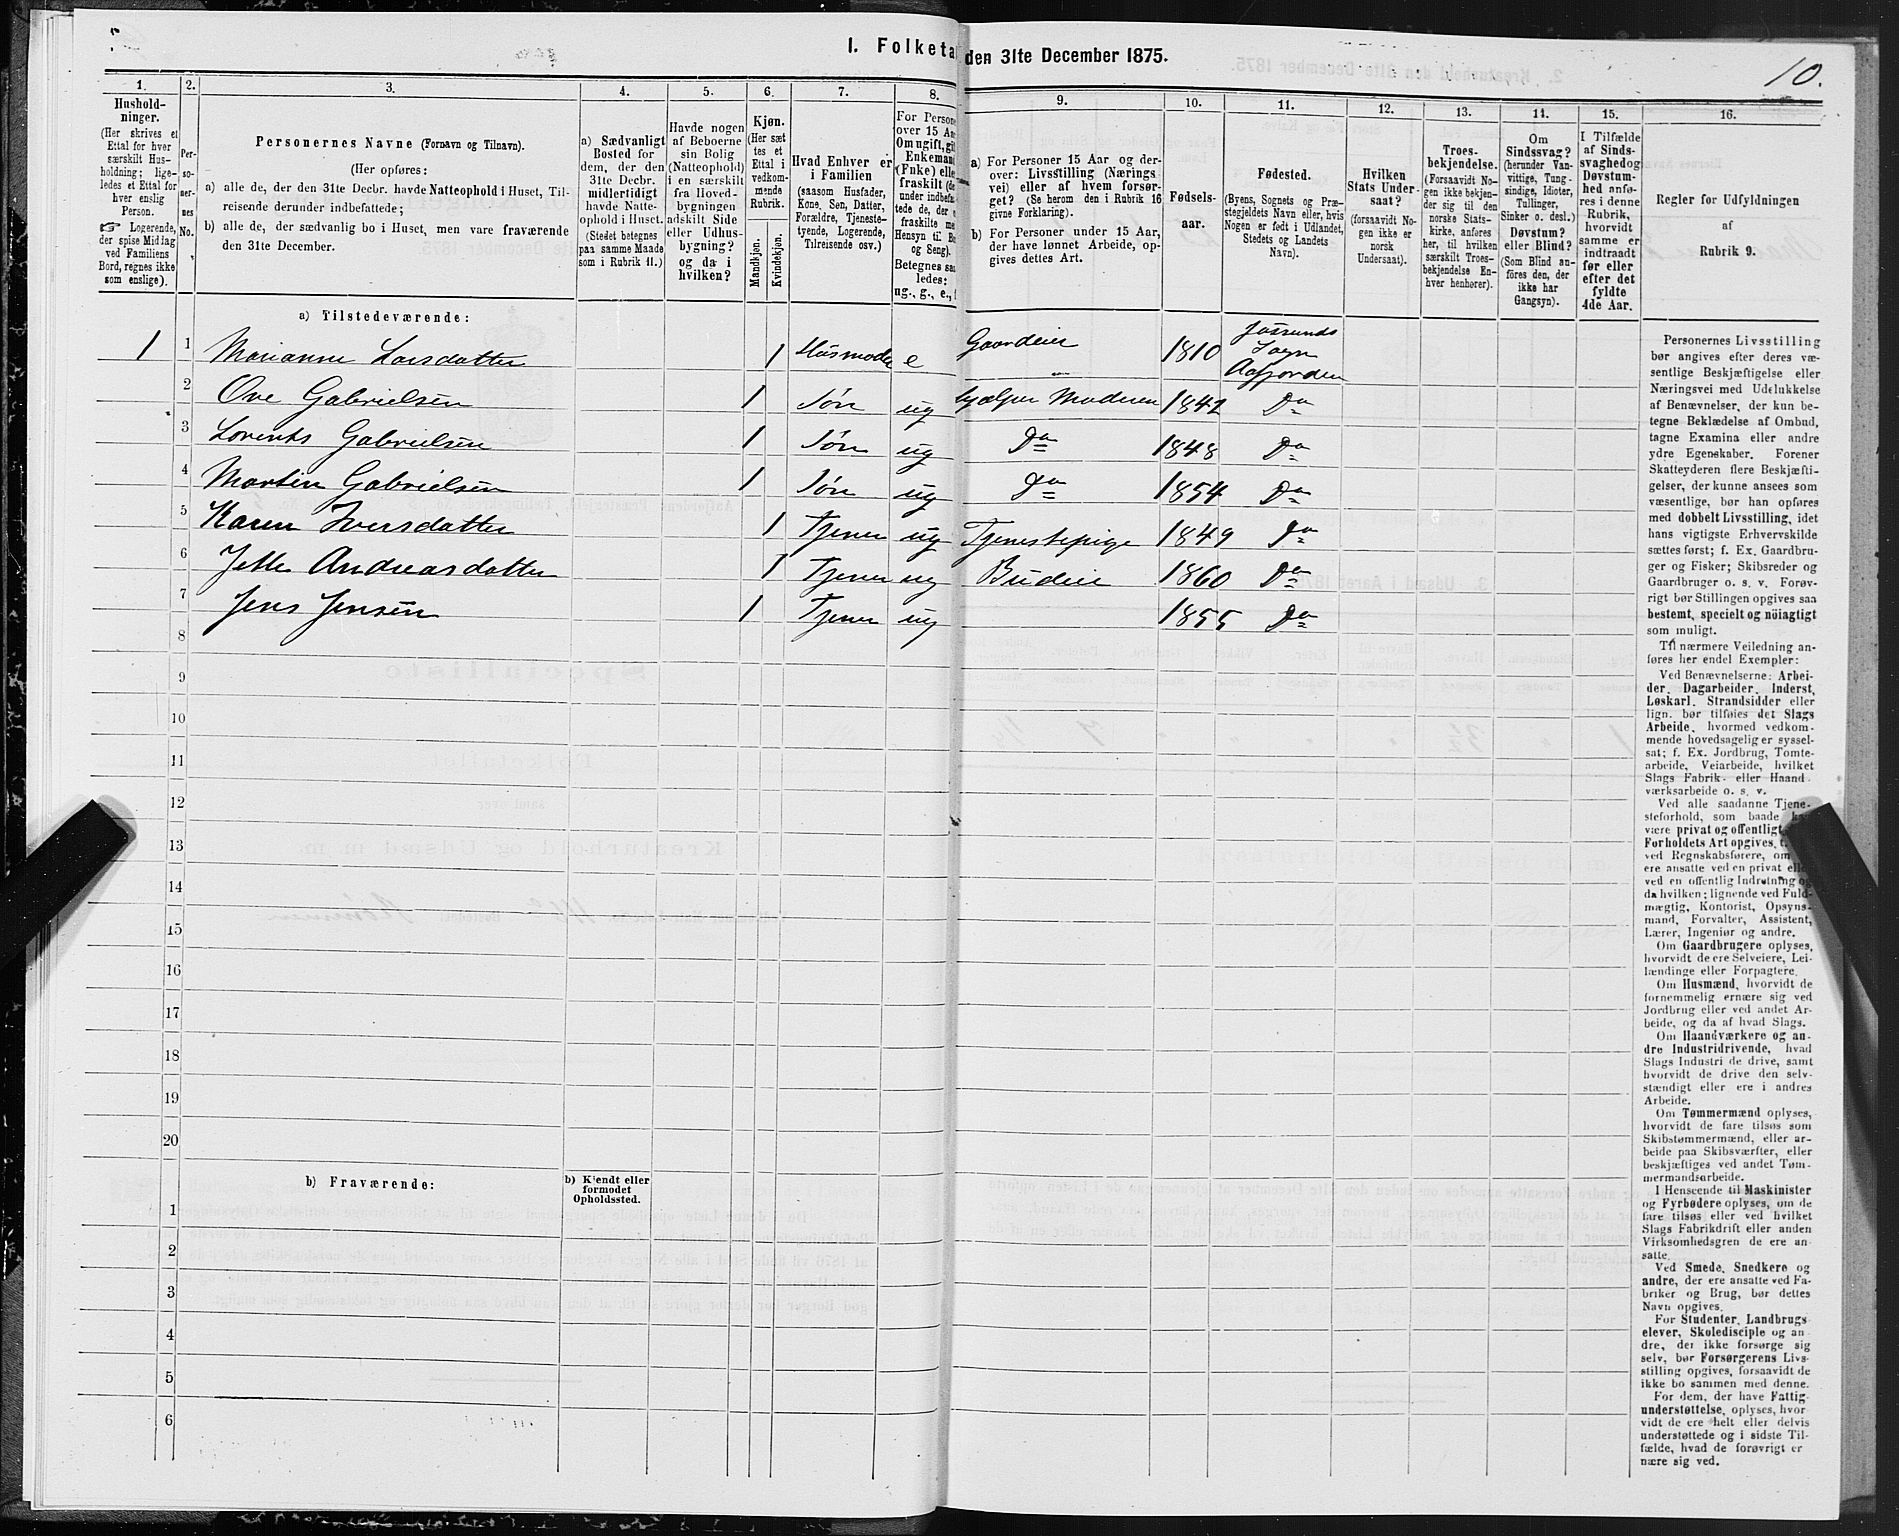 1. Folketal den 31te December 1875.
10.
1. 2. 3. 4. 5. 6. 7. 8. 9. 10. 11. 12. 13. 14. 15. 16.
Hushold-
ninger.
(Her skrives et
Ettal for hver
særskilt Hus-
holdning; lige-
ledes et Ettal for
hver enslig
Person.
☞ Logerende,
der spise Middag
ved Familiens
Bord, regnes ikke
som enslige).
Per-
so-
ner-
nes
No.
Personernes Navne (Fornavn og Tilnavn).
(Her opføres:
a) alle de, der den 31te Decbr. havde Natteophold i Huset, Til-
reisende derunder indbefattede;
b) alle de, der sædvanlig bo i Huset, men vare fraværende
den 31te December.
a) Sædvanligt
Bosted for
dem, der den
31te Decbr.
midlertidigt
havde Natte-
ophold i Huset.
(Stedet betegnes
paa samme Maade
som i Rubrik 11.)
Havde nogen
af Beboerne
sin Bolig
(Natteophold)
i en særskilt
fra Hoved-
bygningen
adskilt Side
eller Udhus-
bygning?
og da i
hvilken?
Kjøn.
(Her sæt
tes et
Ettal i
vedkom-
mende
Rubrik.
Mandkjøn.
Kvindekjøn.
Hvad Enhver er
i Familien
(saasom Husfader,
Kone, Søn, Datter,
Forældre, Tjeneste-
tyende, Logerende,
Tilreisende osv.)
For Persone
over 15 Aa
Om ugift, gif
Enkemand
(Enke) elle
fraskilt (de
under indbefat
tede de, der e
fraskilte me
Hensyn til Bo
og Seng).
Betegnes saa
ledes:
ug., g., e., f
a) For Personer 15 Aar og der-
over: Livsstilling (Nærings
vei) eller af hvem forsør-
get? (Se herom den i Rubrik 16
givne Forklaring).
b) For Personer under 15 Aar,
der have lønnet Arbeide, op-
gives dettes Art.
Fødsels-
aar.
Fødested.
(Byens, Sognets og Præ-
stegjeldets Navn eller, hvis
Nogen er født i Udlandet,
Stedets og Landets
Navn).
Hvilken
Stats Under-
saat?
(forsaavidt No-
gen ikke er
norsk
Undersaat).
Troes-
bekjendelse.
(Forsaavidt No-
gen ikke bekjen-
der sig til den
norske Stats-
kirke, anføres
her, til hvilken
særskilt Troes-
bekjendelse En-
hver henhører).
Om
Sindssvag?
(herunder Van-
vittige, Tung-
sindige, Idioter,
Tullinger,
Sinker o. desl.)
Døvstum?
eller Blind?
(Som Blind an-
føres den, der
ikke har
Gangsyn).
I Tilfælde
af Sinds-
svaghed og
Døvstum-
hed anfø-
res i denne
Rubrik,
hvorvidt
samme er
indtraadt
før eller
efter det
fyldte
4de Aar.
Regler for Udfyldningen
af
Rubrik 9.
a) Tilstedeværende:
1 1 Marianne Larsdatter 1 Husmoder e Gaardeier 1810 Jøssunds Sogn Aafjorden
2 Ove Gabrielsen 1 Søn ug hjælper Moderen 1842 Do
3 Lorents Gabrielsen 1 Søn ug Do 1848 Do
4 Martin Gabrielsen 1 Søn ug Do 1854 Do
5 Karen Iversdatter 1 Tjener ug Tjenestepige 1849 Do
6 Jette Andreasdatter 1 Tjener ug Budeie 1860 Do
7 Jens Jensen 1 Tjener ug 1855 Do
8
9
10
11
12
13
14
15
16
17
18
19
20
b) Fraværende:
b) Kjendt eller
formodet
Opholdssted.
1
2
3
4
5
6
Personernes Livsstilling
bør angives efter deres væ-
sentlige Beskjæftigelse eller
Næringsvei med Udelukkelse
af Benævnelser, der kun be-
tegne Beklædelse af Ombud,
tagne Examina eller andre
ydre Egenskaber. Forener
Skatteyderen flere Beskjæfti-
gelser, der kunne ansees som
væsentlige, bør han opføres
med dobbelt Livsstilling, idet
hans vigtigste Erhvervskilde
sættes først; f. Ex. Gaardbru-
ger og Fisker; Skibsreder og
Gaardbruger o. s. v. Forøv-
rigt bør Stillingen opgives saa
bestemt, specielt og nøiagtigt
som muligt.
Til nærmere Veiledning an-
føres her endel Exempler:
Ved Benævnelserne: Arbei-
der, Dagarbeider, Inderst,
Løskarl, Strandsidder eller
lign. bør tilføies det Slags
Arbeide, hvormed vedkom-
mende hovedsagelig er syssel-
sat; f. Ex. Jordbrug, Tomte-
arbeide, Veiarbeide, hvilket
Slags Fabrik- eller Haand
værksarbeide o. s. v.
Ved alle saadanne Tjene-
steforhold, som baade
være privat og offentligt,
Forholdets Art opgives,
ved Regnskabsførere, om
ere ansatte ved en privat
ved en offentlig Indretning
da hvilken; lignende ved Fuld-
mægtig, Kontorist, Opsyns-
mand, Forvalter, Assistent,
Lærer, Ingeniør og andre.
Om Gaardbrugere oplyses,
hvorvidt de ere Selveiere, Lei-
lændinge eller Forpagtere.
Om Husmænd, hvorvidt de
fornemmelig ernære sig ved
Jordbrug eller ved andet Ar-
beide, og da af hvad Slags.
Om Haandværkere og an-
dre Industridrivende, hvad
Slags Industri de drive, samt
hvorvidt de drive den selv-
stændigt eller ere i andres
Arbeide.
Om Tømmermænd oplyses,
hvorvidt de fare tilsøs som
Skibstømmermænd, eller ar-
beide paa Skibsværfter, eller
beskjæftiges ved andet Tøm-
mermandsarbeide.
I Henseende til Maskinister
og Fyrbødere oplyses, om de
fare tilsøs eller ved hvilket
Slags Fabrikdrift eller anden
Virksomhedsgren de ere an-
satte.
Ved Smede, Snedkere og
andre, der ere ansatte ved Fa-
briker og Brug, bør dettes
Navn opgives.
For Studenter, Landbrugs
elever, Skoledisciple og an
dre, der ikke forsørge sig
selv, bør Forsørgerens Livs-
stilling opgives, forsaavidt de
ikke bo sammen med denne.
For dem, der have Fattig
understøttelse, oplyses, hvor
vidt de ere helt eller delvis
understøttede og i sidste Til-
fælde, hvad de forøvrigt er
nære sig ved.